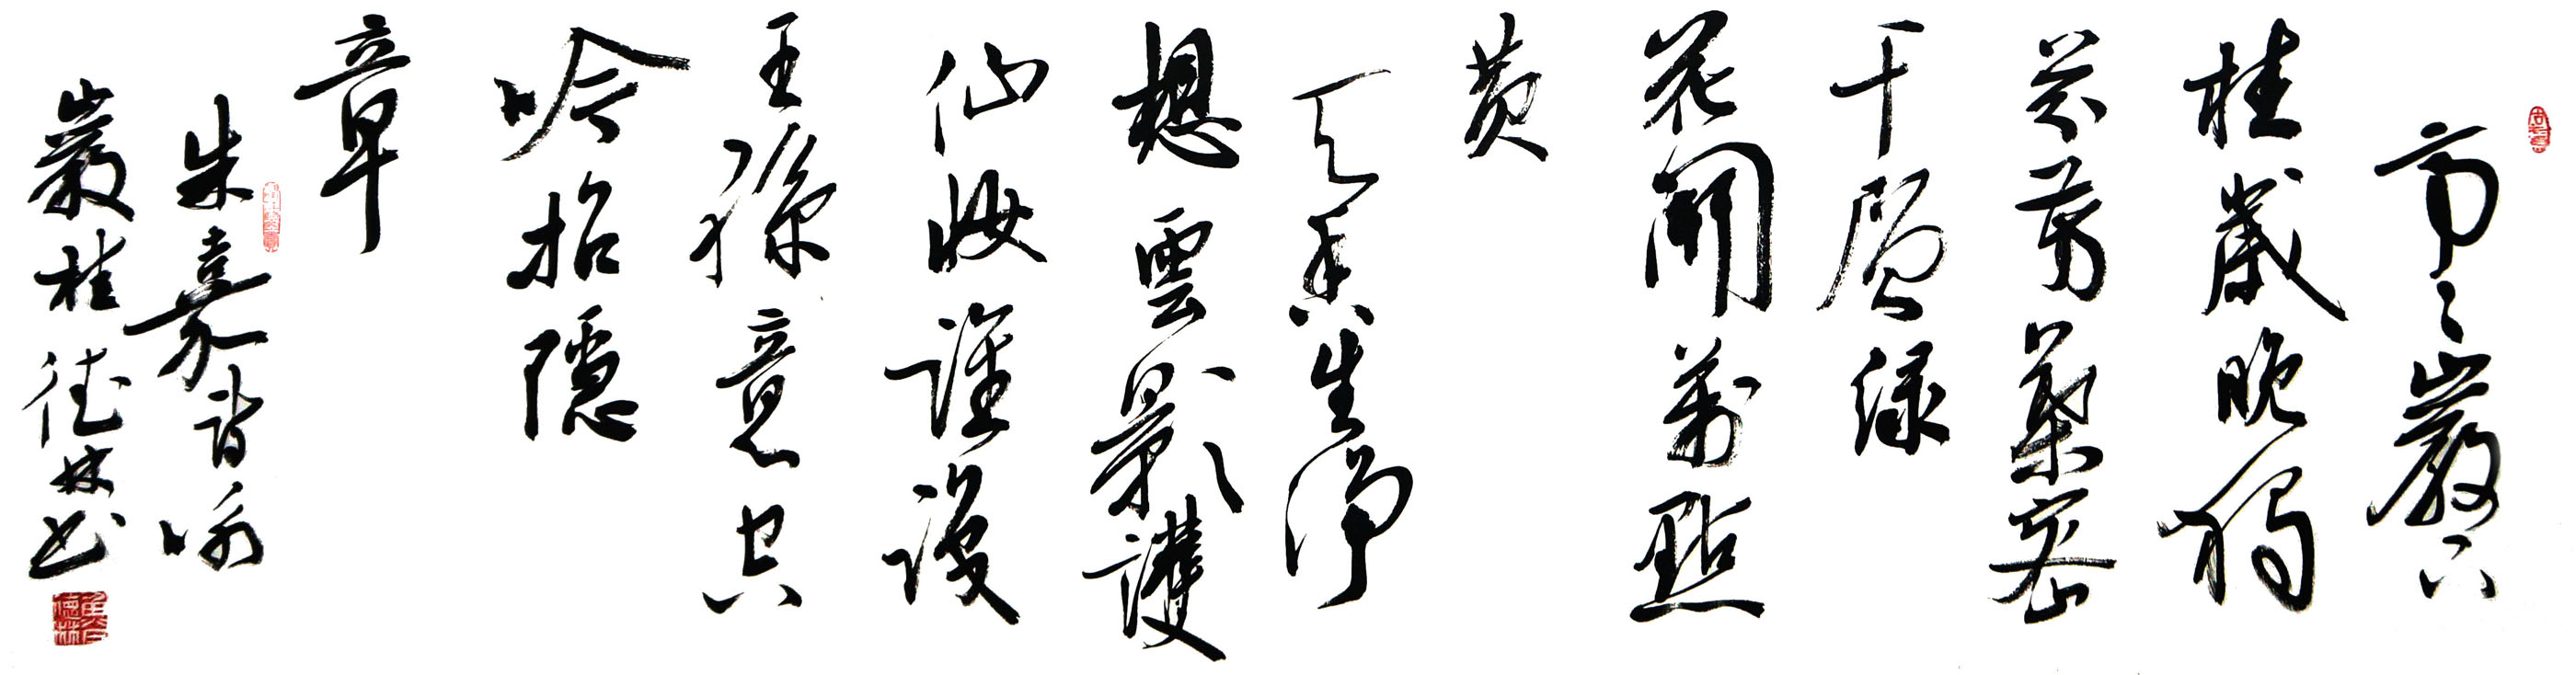 亭〻巖下
桂歲晚獨
芬芳葉密
千層綠
花開萬點
黄
天香生淨
想雲影護
仙妝誰
王孫意空
吟招隱
章
朱熹詩咏
巖桂德林書
德林